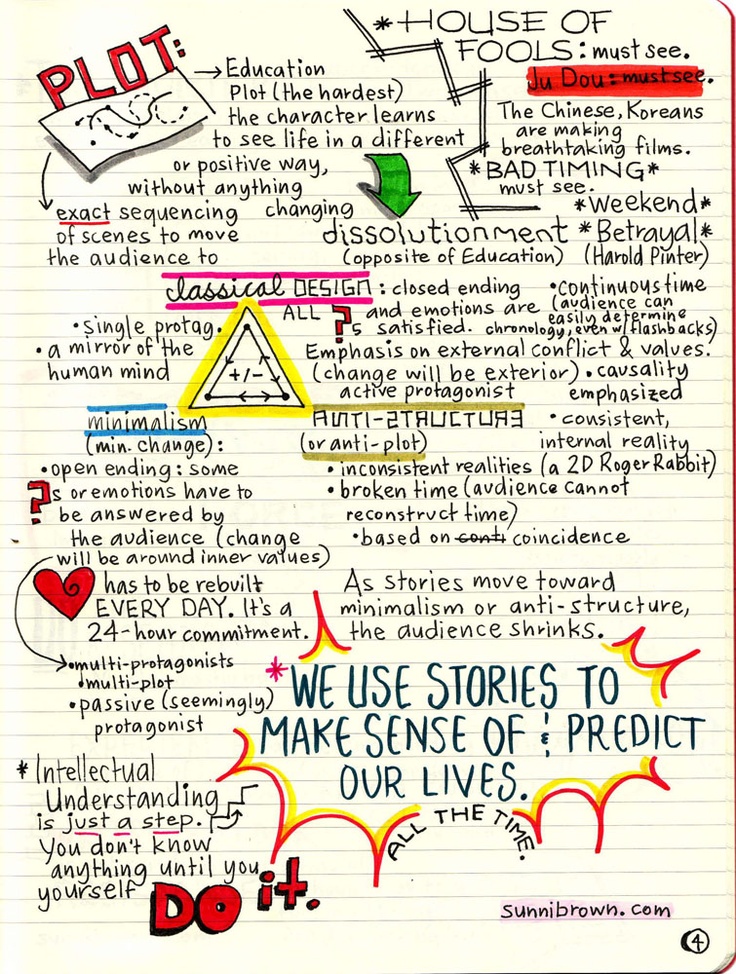 PLOT:
→ Education
Plot (the hardest)
the character learns
to see life in a different
or positive way,
without anything
changing
exact sequencing
of scenes to move
the audience to
* HOUSE OF
FOOLS: must see.
Ju Dou: must see.
The Chinese, Koreans
are making
breathtaking films.
*BAD TIMING*
must see.
*Weekend*
*Betrayal*
(Harold Pinter)
dissolutionment
(opposite of Education)
classical DESIGN: closed ending
ALL ?s and emotions are
satisfied.
• continuous time
(audience can
easily determine
chronology, even w/flashbacks)
• single protag.
• a mirror of the
human mind
+/-
Emphasis on external conflict & values.
(change will be exterior)
active protagonist
• causality
emphasized
• consistent,
internal reality
minimalism
(min. change):
• open ending: some
?s or emotions have to
be answered by
the audience (change
will be around inner values)
ANTI-STRUCTURE
(or anti-plot)
• inconsistent realities (a 2D Roger Rabbit)
• broken time (audience cannot
reconstruct time)
• based on conti coincidence
has to be rebuilt
EVERY DAY. It's a
24-hour commitment.
As stories move toward
minimalism or anti-structure,
the audience shrinks.
• multi-protagonists
• multi-plot
• passive (seemingly)
protagonist
*WE USE STORIES TO
MAKE SENSE OF & PREDICT
OUR LIVES.
ALL THE TIME.
* Intellectual
Understanding
is just a step.
You don't know
anything until you
yourself
DO it.
sunnibrown.com
4